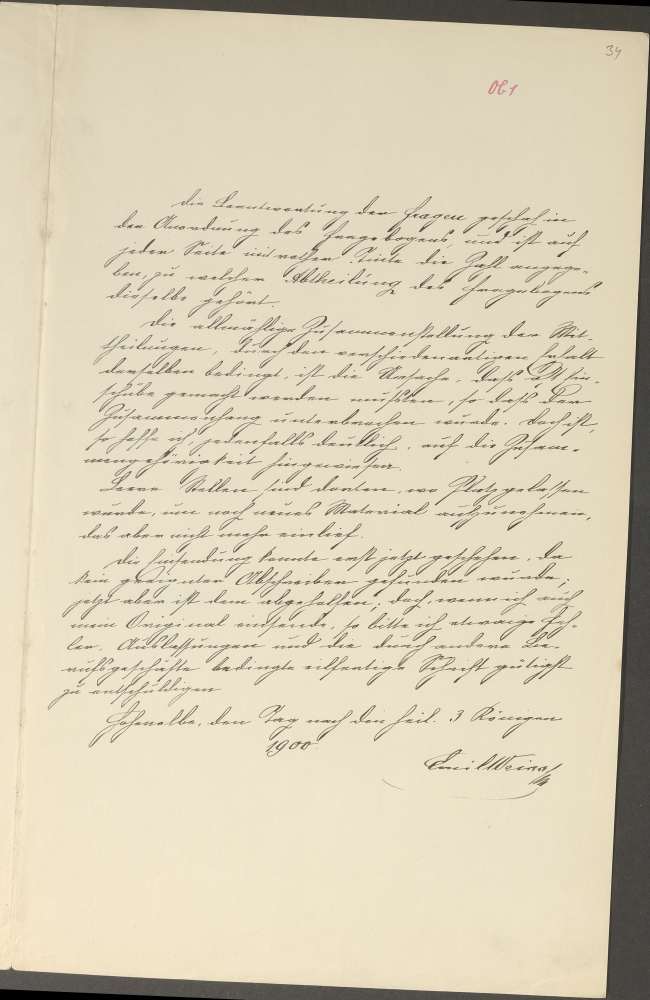 34
Ob1
Die Beantwortung der Fragen geschah in
der Anordnung des Fragebogens, und ist auf
jeder Seite mit rother Tinte die Zahl angege-
ben, zu welcher Abtheilung des Fragebogens
dieselbe gehört.
Die allmählige Zusammenstellung der Mit-
theilungen, durch den verschiedenartigen Inhalt
derselben bedingt, ist die Ursache, dass oft Ein-
schübe gemacht werden mussten, so dass der
Zusammenhang unterbrochen wurde. Doch ist,
so hoffe ich, jedenfalls deutlich, auf die Zusam-
mengehörigkeit hingewiesen.
Leere Stellen sind dorten, wo Platz gelassen
wurde, um noch neues Material aufzunehmen,
das aber nicht mehr einlief.
Die Einsendung konnte erst jetzt geschehen, da
kein geeigneter Abschreiber gefunden wurde;
jetzt aber ist dem abgeholfen; doch, wenn ich auch
mein Original einsende, so bitte ich etwaige Feh-
ler, Auslassungen und die durch andere Be-
rufsgeschäfte bedingte eilfertige Schrift gütigst
zu entschuldigen
Hohenelbe, den Tag nach den heil. 3 Königen
1900.
Emil Weiss